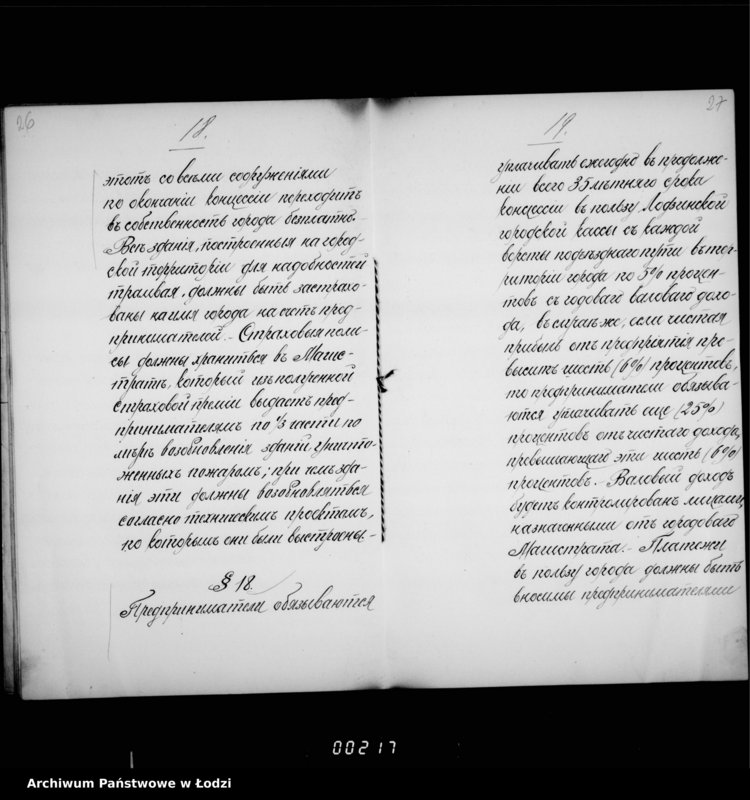 26
18.
этотъ со всѣми сооруженіями
по окончаніи концессіи переходитъ
въ собственность города безплатно.-
Всѣ зданія, построенныя на город-
ской территоріи для надобностей
трамвая, должны быть застрахо-
ваны на имя города на счетъ пред-
принимателей.- Страховыя поли-
сы должны храниться въ Магис-
тратѣ, который изъ полученной
страховой преміи выдастъ пред-
принимателямъ по ⅓ части по
мѣрѣ возобновленія зданій, уничто-
женныхъ пожаромъ; при чемъ зда-
нія эти должны возобновляться
согласно техническимъ проектамъ,
по которымъ они были выстроены.-
§ 18.
Предприниматели обязываются
27
19.
уплачивать ежегодно въ продолже-
ніи всего 35 лѣтняго срока
концессіи въ пользу Лодзинской
городской кассы съ каждой
версты подъѣзднаго пути въ тер-
риторіи города по 5% процен-
товъ съ годоваго валоваго дохо-
да, въ случаѣ же, если чистая
прибыль отъ предпріятія пре-
выситъ шесть (6%) процентовъ,
то предприниматели обязыва-
ются уплачивать еще (25%)
процентовъ отъ чистаго дохода,
превышающаго эти шесть (6%)
процентовъ.- Валовый доходъ
будетъ контролированъ лицами,
назначенными отъ городоваго
Магистрата.- Платежи
въ пользу города должны быть
вносимы предпринимателями
00217
Archiwum Państwowe w Łodzi